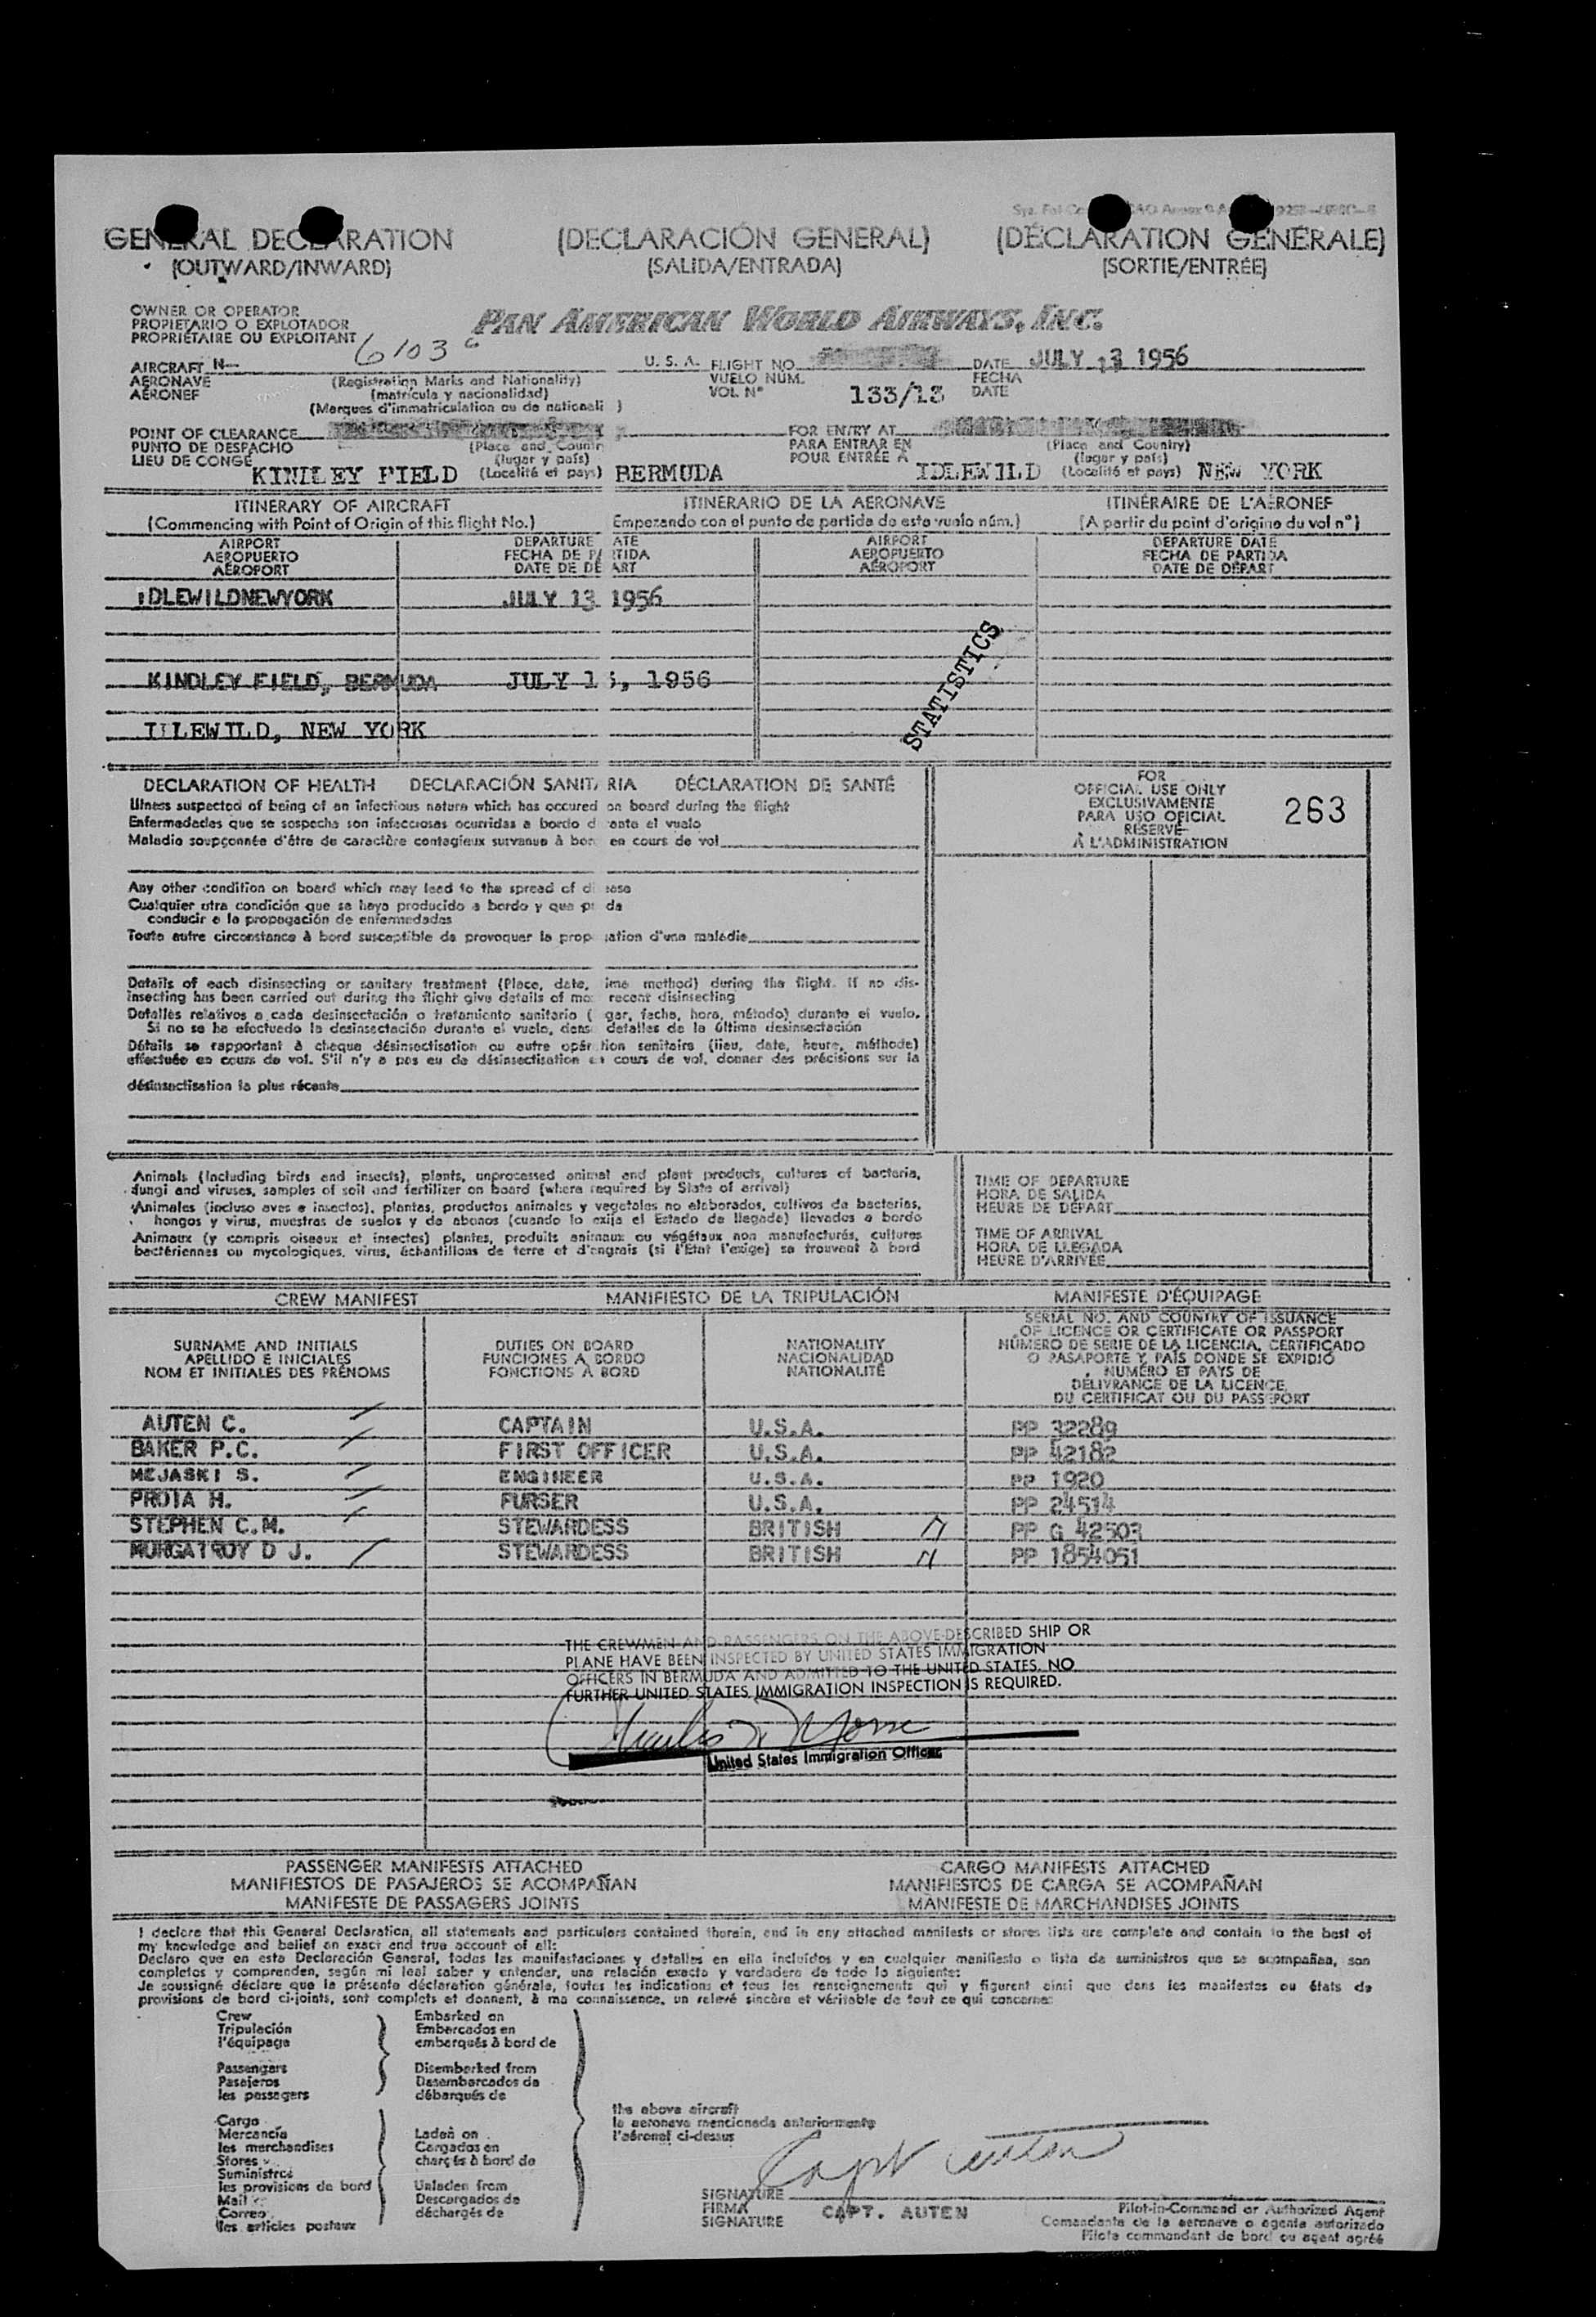 GENERAL DECLARATION (DECLARACIÓN GENERAL) (DÉCLARATION GÉNÉRALE)
(OUTWARD/INWARD) (SALIDA/ENTRADA) (SORTIE/ENTRÉE)
OWNER OR OPERATOR
PROPIETARIO O EXPLOTADOR
PROPRIÉTAIRE OU EXPLOITANT
PAN AMERICAN WORLD AIRWAYS, INC.
AIRCRAFT N— 6103 C U. S. A. FLIGHT NO. DATE JULY 13 1956
AERONAVE (Registration Marks and Nationality) VUELO NUM. FECHA
AÉRONEF (matrícula y nacionalidad) VOL N° 133/13 DATE
(Marques d'immatriculation ou de nationali )
POINT OF CLEARANCE FOR ENTRY AT
PUNTO DE DESPACHO (Place and Countr PARA ENTRAR EN (Place and Country)
LIEU DE CONGÉ (lugar y país) POUR ENTRÉE À (lugar y país)
KINDLEY FIELD (Localité et pays) BERMUDA IDLEWILD (Localité et pays) NEW YORK
ITINERARY OF AIRCRAFT ITINERARIO DE LA AERONAVE ITINÉRAIRE DE L'AÉRONEF
(Commencing with Point of Origin of this flight No.) Empezando con el punto de partida de este vuelo núm.) (A partir du point d'origine du vol n°)
AIRPORT DEPARTURE ATE AIRPORT DEPARTURE DATE
AEROPUERTO FECHA DE PA TIDA AEROPUERTO FECHA DE PARTIDA
AÉROPORT DATE DE DÉ ART AÉROPORT DATE DE DÉPART
IDLEWILDNEWYORK JULY 13 1956
KINDLEY FIELD, BERMUDA JULY 13, 1956
IDLEWILD, NEW YORK
STATISTICS
DECLARATION OF HEALTH DECLARACIÓN SANITARIA DÉCLARATION DE SANTÉ
Illness suspected of being of an infectious nature which has occured on board during the flight
Enfermedades que se sospecha son infecciosas ocurridas a bordo d ante el vuelo
Maladie soupçonnée d'être de caractère contagieux survenue à bor en cours de vol
Any other condition on board which may lead to the spread of di ease
Cualquier otra condición que se haya producido a bordo y que pu da
conducir a la propagación de enfermedades
Toute autre circonstance à bord susceptible de provoquer la prop ation d'une maladie
Details of each disinsecting or sanitary treatment (Place, date, ime method) during the flight. If no dis-
insecting has been carried out during the flight give details of mo recent disinsecting
Detalles relativos a cada desinsectación o tratamiento sanitario ( gar, fecha, hora, método) durante el vuelo.
Si no se ha efectuado la desinsectación durante el vuelo, dens detalles de la última desinsectación
Détails se rapportant à chaque désinsectisation ou autre opération sanitaire (lieu, date, heure, méthode)
effectuée en cours de vol. S'il n'y a pas eu de désinsectisation en cours de vol, donner des précisions sur la
désinsectisation la plus récente
FOR
OFFICIAL USE ONLY
EXCLUSIVAMENTE
PARA USO OFICIAL
RÉSERVÉ
À L'ADMINISTRATION
263
Animals (including birds and insects), plants, unprocessed animal and plant products, cultures of bacteria,
fungi and viruses, samples of soil and fertilizer on board (where required by State of arrival)
Animales (incluso aves e insectos), plantas, productos animales y vegetales no elaborados, cultivos de bacterias,
hongos y virus, muestras de suelos y de abonos (cuando lo exija el Estado de llegada) llevados a bordo
Animaux (y compris oiseaux et insectes) plantes, produits animaux ou végétaux non manufacturés, cultures
bactériennes ou mycologiques, virus, échantillons de terre et d'engrais (si l'État l'exige) se trouvant à bord
TIME OF DEPARTURE
HORA DE SALIDA
HEURE DE DÉPART
TIME OF ARRIVAL
HORA DE LLEGADA
HEURE D'ARRIVÉE
CREW MANIFEST MANIFIESTO DE LA TRIPULACIÓN MANIFESTE D'ÉQUIPAGE
SURNAME AND INITIALS
APELLIDO E INICIALES
NOM ET INITIALES DES PRÉNOMS
DUTIES ON BOARD
FUNCIONES A BORDO
FONCTIONS À BORD
NATIONALITY
NACIONALIDAD
NATIONALITÉ
SERIAL NO. AND COUNTRY OF ISSUANCE
OF LICENCE OR CERTIFICATE OR PASSPORT
NÚMERO DE SERIE DE LA LICENCIA, CERTIFICADO
O PASAPORTE Y PAÍS DONDE SE EXPIDIÓ
NUMÉRO ET PAYS DE
DÉLIVRANCE DE LA LICENCE,
DU CERTIFICAT OU DU PASSEPORT
AUTEN C. CAPTAIN U.S.A. PP 32289
BAKER P.C. FIRST OFFICER U.S.A. PP 42182
MEJASKI S. ENGINEER U.S.A. PP 1920
PROIA H. PURSER U.S.A. PP 24514
STEPHEN C.M. STEWARDESS BRITISH PP G 42503
MURGATROY D J. STEWARDESS BRITISH PP 1854051
THE CREWMEN AND PASSENGERS ON THE ABOVE-DESCRIBED SHIP OR
PLANE HAVE BEEN INSPECTED BY UNITED STATES IMMIGRATION
OFFICERS IN BERMUDA AND ADMITTED TO THE UNITED STATES. NO
FURTHER UNITED STATES IMMIGRATION INSPECTION IS REQUIRED.
United States Immigration Officer
PASSENGER MANIFESTS ATTACHED CARGO MANIFESTS ATTACHED
MANIFIESTOS DE PASAJEROS SE ACOMPAÑAN MANIFIESTOS DE CARGA SE ACOMPAÑAN
MANIFESTE DE PASSAGERS JOINTS MANIFESTE DE MARCHANDISES JOINTS
I declare that this General Declaration, all statements and particulars contained therein, and in any attached manifests or stores lists are complete and contain to the best of
my knowledge and belief an exact and true account of all:
Declaro que en esta Declaración General, todas las manifestaciones y detalles en ella incluídos y en cualquier manifiesto o lista de suministros que se acompañan, son
completos y comprenden, según mi leal saber y entender, una relación exacta y verdadera de todo lo siguiente:
Je soussigné déclare que la présente déclaration générale, toutes les indications et tous les renseignements qui y figurent ainsi que dans les manifestes ou états de
provisions de bord ci-joints, sont complets et donnent, à ma connaissance, un relevé sincère et véritable de tout ce qui concerne:
Crew Embarked on
Tripulación Embarcados en
l'équipage embarqués à bord de
Passengers Disembarked from
Pasajeros Desembarcados de
les passagers débarqués de
Cargo
Mercancía Laden on
les marchandises Cargados en
Stores chargés à bord de
Suministros
les provisions de bord Unladen from
Mail Descargados de
Correo déchargés de
les articles postaux
the above aircraft
la aeronave mencionada anteriormente
l'aéronef ci-dessus
Capt Auten
SIGNATURE
FIRMA CAPT. AUTEN
SIGNATURE
Pilot-in-Command or Authorized Agent
Comandante de la aeronave o agente autorizado
Pilote commandant de bord ou agent agréé